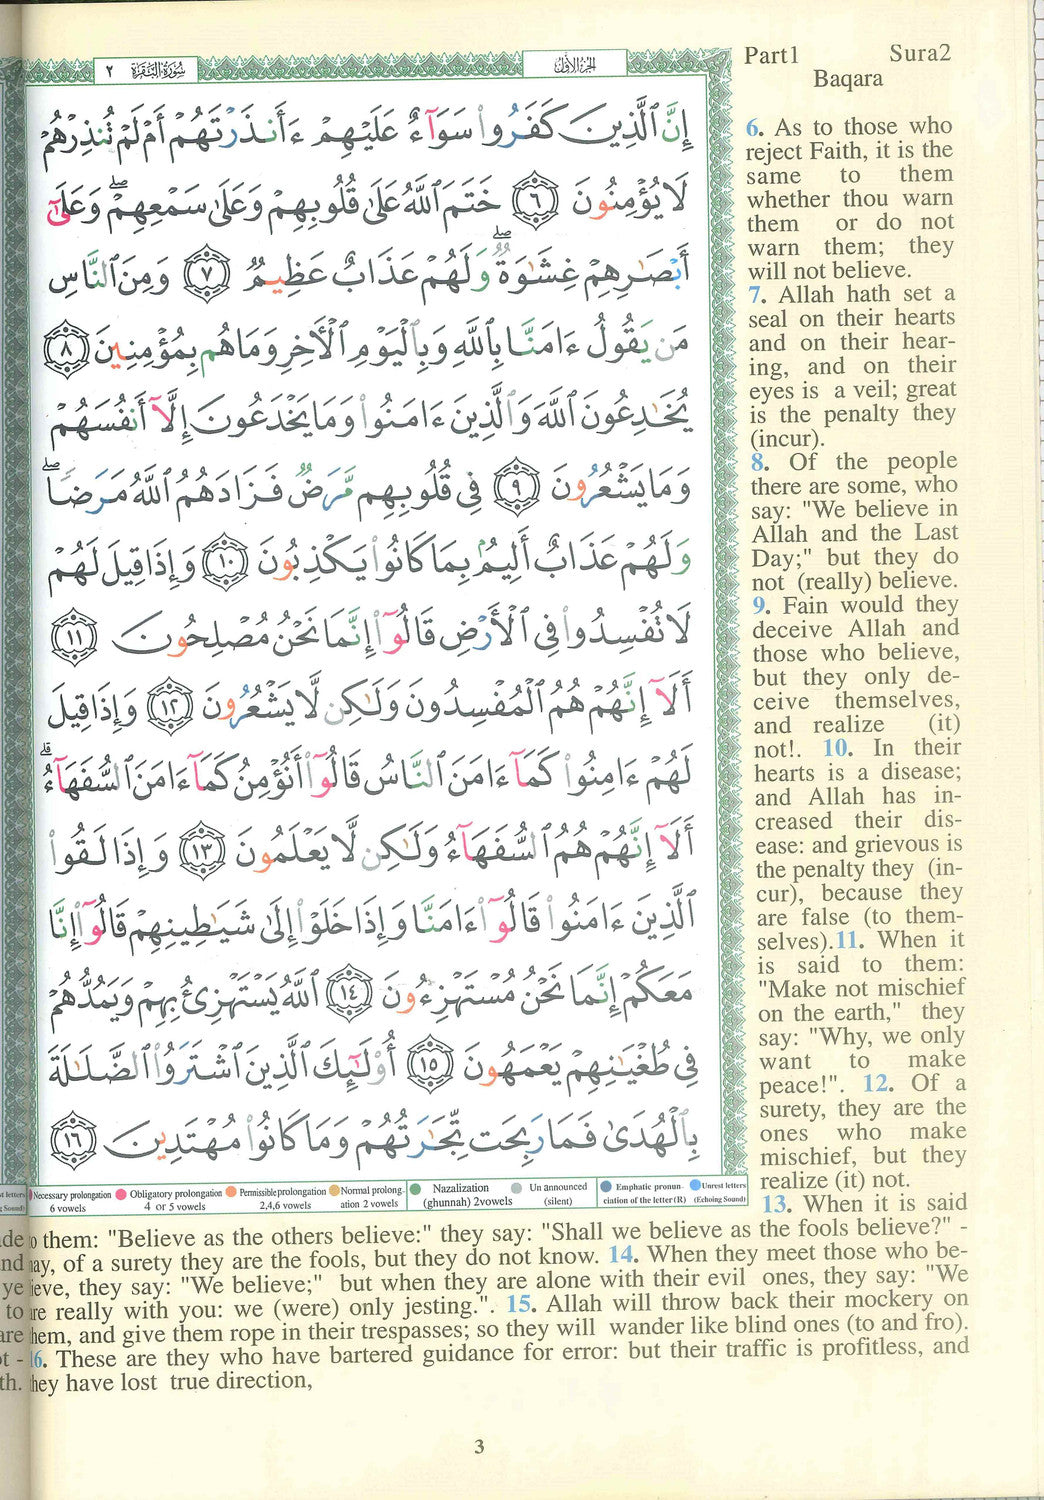 Part1 Sura2
Baqara
سورة البقرة ٢
الجزء الأول
إِنَّ ٱلَّذِينَ كَفَرُوا۟ سَوَآءٌ عَلَيْهِمْ ءَأَنذَرْتَهُمْ أَمْ لَمْ تُنذِرْهُمْ
لَا يُؤْمِنُونَ ٦ خَتَمَ ٱللَّهُ عَلَىٰ قُلُوبِهِمْ وَعَلَىٰ سَمْعِهِمْ ۖ وَعَلَىٰٓ
أَبْصَـٰرِهِمْ غِشَـٰوَةٌ ۖ وَلَهُمْ عَذَابٌ عَظِيمٌ ٧ وَمِنَ ٱلنَّاسِ
مَن يَقُولُ ءَامَنَّا بِٱللَّهِ وَبِٱلْيَوْمِ ٱلْـَٔاخِرِ وَمَا هُم بِمُؤْمِنِينَ ٨
يُخَـٰدِعُونَ ٱللَّهَ وَٱلَّذِينَ ءَامَنُوا۟ وَمَا يَخْدَعُونَ إِلَّآ أَنفُسَهُمْ
وَمَا يَشْعُرُونَ ٩ فِى قُلُوبِهِم مَّرَضٌ فَزَادَهُمُ ٱللَّهُ مَرَضًا ۖ
وَلَهُمْ عَذَابٌ أَلِيمٌۢ بِمَا كَانُوا۟ يَكْذِبُونَ ١٠ وَإِذَا قِيلَ لَهُمْ
لَا تُفْسِدُوا۟ فِى ٱلْأَرْضِ قَالُوٓا۟ إِنَّمَا نَحْنُ مُصْلِحُونَ ١١
أَلَآ إِنَّهُمْ هُمُ ٱلْمُفْسِدُونَ وَلَـٰكِن لَّا يَشْعُرُونَ ١٢ وَإِذَا قِيلَ
لَهُمْ ءَامِنُوا۟ كَمَآ ءَامَنَ ٱلنَّاسُ قَالُوٓا۟ أَنُؤْمِنُ كَمَآ ءَامَنَ ٱلسُّفَهَآءُ ۗ
أَلَآ إِنَّهُمْ هُمُ ٱلسُّفَهَآءُ وَلَـٰكِن لَّا يَعْلَمُونَ ١٣ وَإِذَا لَقُوا۟
ٱلَّذِينَ ءَامَنُوا۟ قَالُوٓا۟ ءَامَنَّا وَإِذَا خَلَوْا۟ إِلَىٰ شَيَـٰطِينِهِمْ قَالُوٓا۟ إِنَّا
مَعَكُمْ إِنَّمَا نَحْنُ مُسْتَهْزِءُونَ ١٤ ٱللَّهُ يَسْتَهْزِئُ بِهِمْ وَيَمُدُّهُمْ
فِى طُغْيَـٰنِهِمْ يَعْمَهُونَ ١٥ أُو۟لَـٰٓئِكَ ٱلَّذِينَ ٱشْتَرَوُا۟ ٱلضَّلَـٰلَةَ
بِٱلْهُدَىٰ فَمَا رَبِحَت تِّجَـٰرَتُهُمْ وَمَا كَانُوا۟ مُهْتَدِينَ ١٦
Necessary prolongation 6 vowels
Obligatory prolongation 4 or 5 vowels
Permissible prolongation 2,4,6 vowels
Normal prolong-ation 2 vowels
Nazalization (ghunnah) 2vowels
Un announced (silent)
Emphatic pronun-ciation of the letter (R)
Unrest letters (Echoing Sound)
6. As to those who
reject Faith, it is the
same to them
whether thou warn
them or do not
warn them; they
will not believe.
7. Allah hath set a
seal on their hearts
and on their hear-
ing, and on their
eyes is a veil; great
is the penalty they
(incur).
8. Of the people
there are some, who
say: "We believe in
Allah and the Last
Day;" but they do
not (really) believe.
9. Fain would they
deceive Allah and
those who believe,
but they only de-
ceive themselves,
and realize (it)
not!. 10. In their
hearts is a disease;
and Allah has in-
creased their dis-
ease: and grievous is
the penalty they (in-
cur), because they
are false (to them-
selves).11. When it
is said to them:
"Make not mischief
on the earth," they
say: "Why, we only
want to make
peace!". 12. Of a
surety, they are the
ones who make
mischief, but they
realize (it) not.
13. When it is said
to them: "Believe as the others believe:" they say: "Shall we believe as the fools believe?" -
nay, of a surety they are the fools, but they do not know. 14. When they meet those who be-
lieve, they say: "We believe;" but when they are alone with their evil ones, they say: "We
are really with you: we (were) only jesting.". 15. Allah will throw back their mockery on
them, and give them rope in their trespasses; so they will wander like blind ones (to and fro).
16. These are they who have bartered guidance for error: but their traffic is profitless, and
they have lost true direction,
3